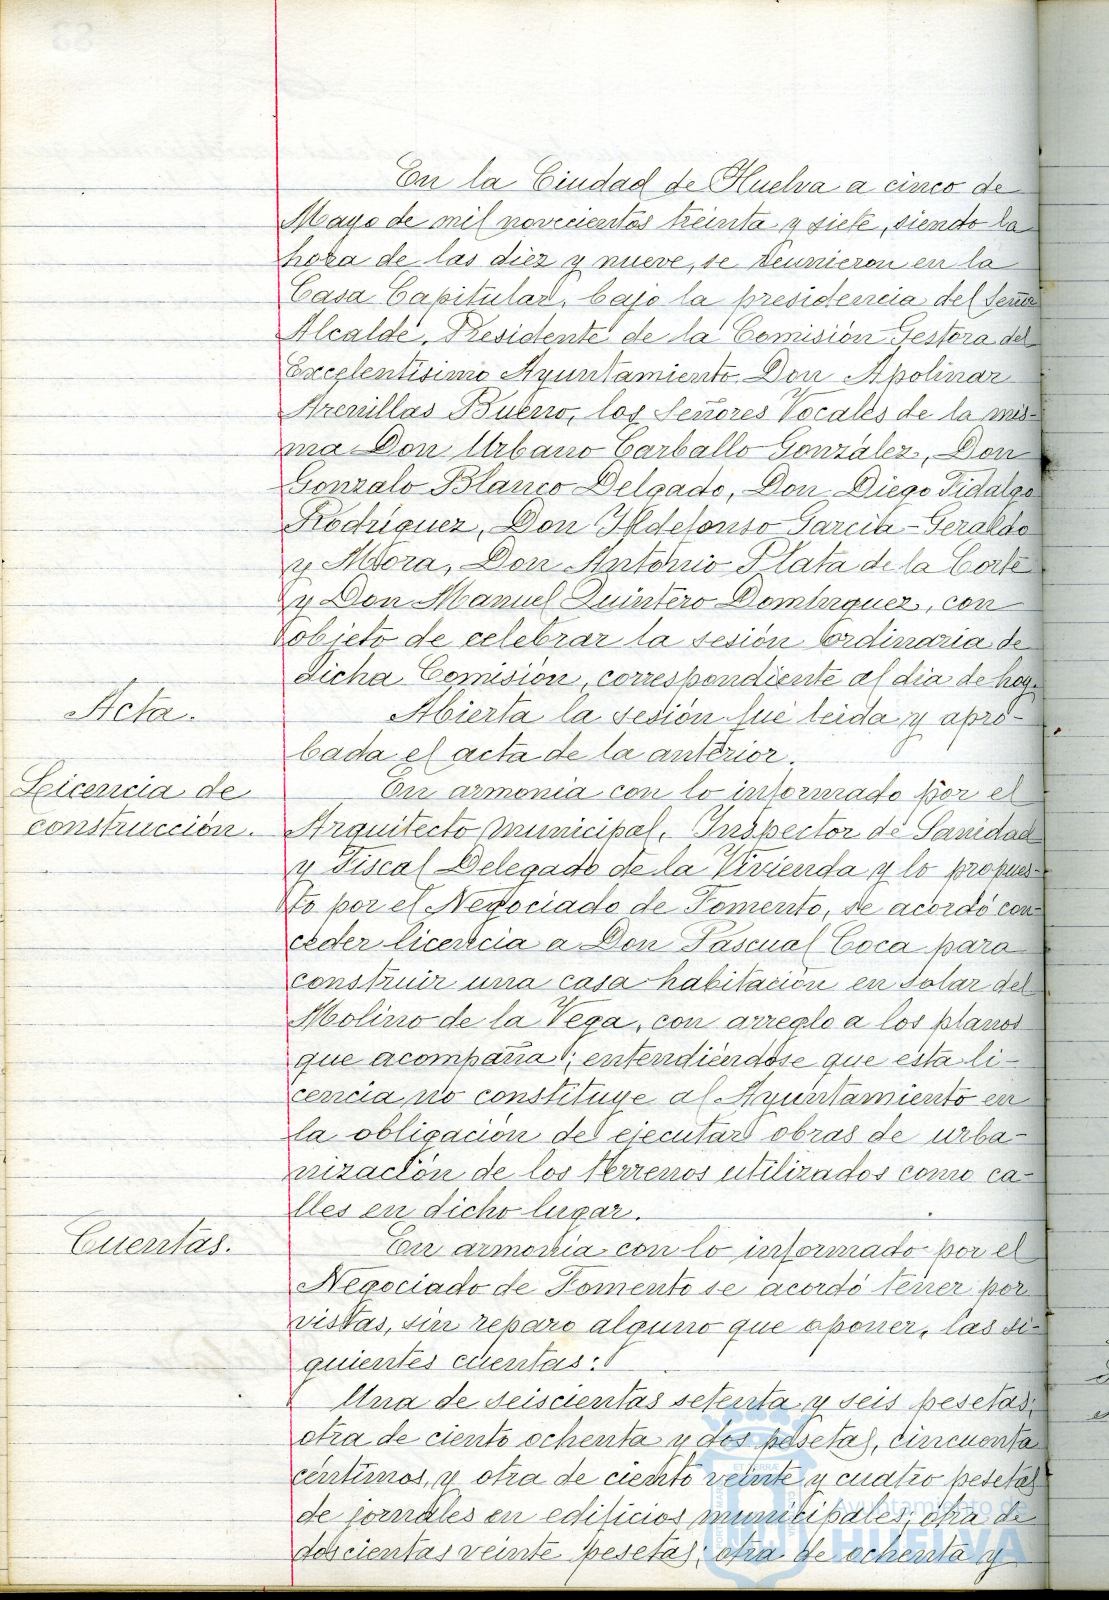 En la Ciudad de Huelva a cinco de
Mayo de mil novecientos treinta y siete, siendo la
hora de las diez y nueve, se reunieron en la
Casa Capitular, bajo la presidencia del Señor
Alcalde, Presidente de la Comisión Gestora del
Excelentísimo Ayuntamiento Don Apolinar
Arenillas Bueno, los Señores Vocales de la mis-
ma Don Urbano Carballo González, Don
Gonzalo Blanco Delgado, Don Diego Fidalgo
Rodríguez, Don Ildefonso García-Geraldo
y Mora, Don Antonio Plata de la Corte
y Don Manuel Quintero Domínguez, con
objeto de celebrar la sesión ordinaria de
dicha Comisión, correspondiente al dia de hoy.
Acta.
Abierta la sesión fué leida y apro-
bada el acta de la anterior.
Licencia de
construcción.
En armonia con lo informado por el
Arquitecto municipal, Inspector de Sanidad
y Fiscal Delegado de la Vivienda y lo propues-
to por el Negociado de Fomento, se acordó con-
ceder licencia a Don Pascual Coca para
construir una casa habitación en solar del
Molino de la Vega, con arreglo a los planos
que acompaña; entendiéndose que esta li-
cencia no constituye al Ayuntamiento en
la obligación de ejecutar obras de urba-
nización de los terrenos utilizados como ca-
lles en dicho lugar.
Cuentas.
En armonía con lo informado por el
Negociado de Fomento se acordó tener por
vistas, sin reparo alguno que oponer, las si-
guientes cuentas:
Una de seiscientas setenta y seis pesetas;
otra de ciento ochenta y dos pesetas, cincuenta
céntimos, y otra de ciento veinte y cuatro pesetas
de jornales en edificios municipales; otra de
doscientas veinte pesetas; otra de ochenta y
Ayuntamiento de
HUELVA